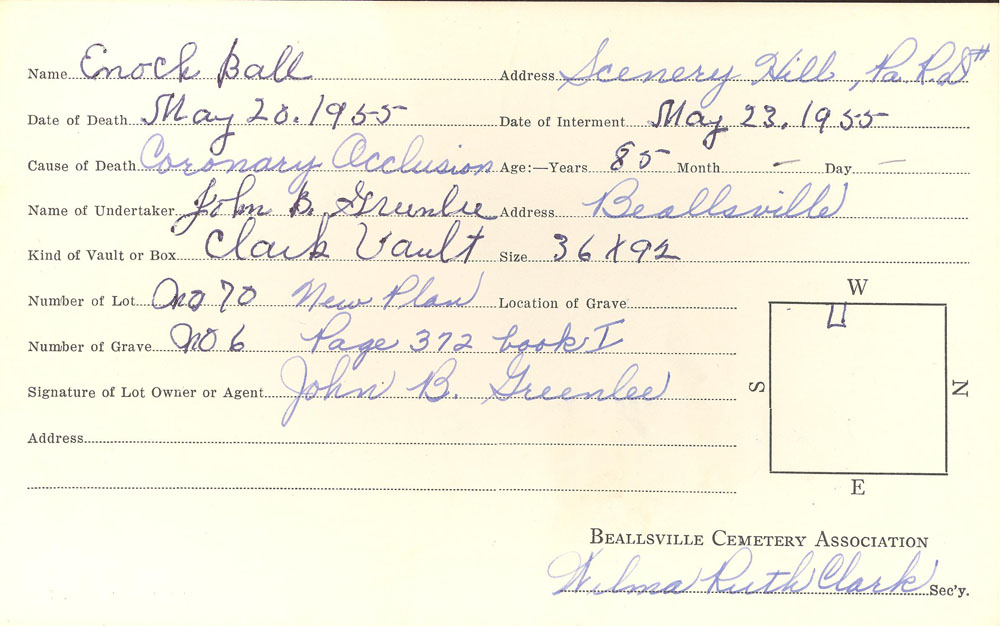 Name Enoch Ball Address Scenery Hill, Pa R.D#
Date of Death May 20. 1955 Date of Interment May 23. 1955
Cause of Death Coronary Occlusion Age:—Years 85 Month - Day -
Name of Undertaker John B. Greenlee Address Beallsville
Kind of Vault or Box Clark Vault Size 36 X 92
Number of Lot no 70 New Plan Location of Grave
W
Number of Grave no 6 Page 372 book I
Signature of Lot Owner or Agent John B. Greenlee
S N
Address
E
BEALLSVILLE CEMETERY ASSOCIATION
Wilma Ruth Clark Sec'y.